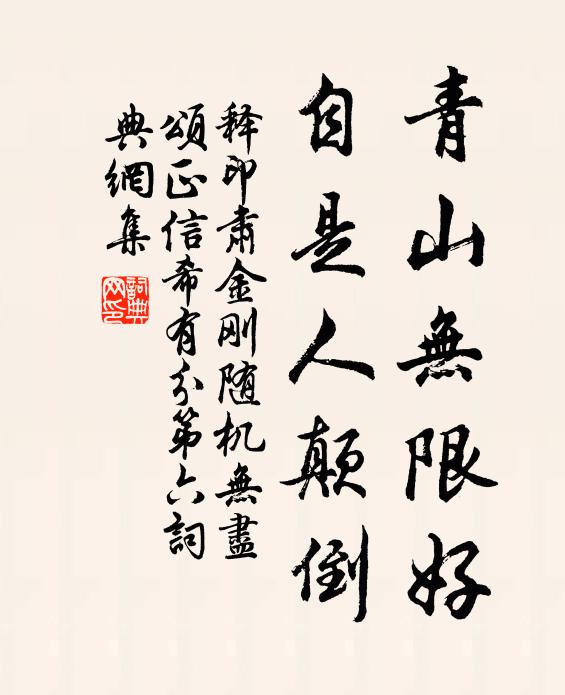 青山無限好
自是人颠倒
释印肃金刚随机無盡
頌正信希有分第六詞
典網集
詞典
网印